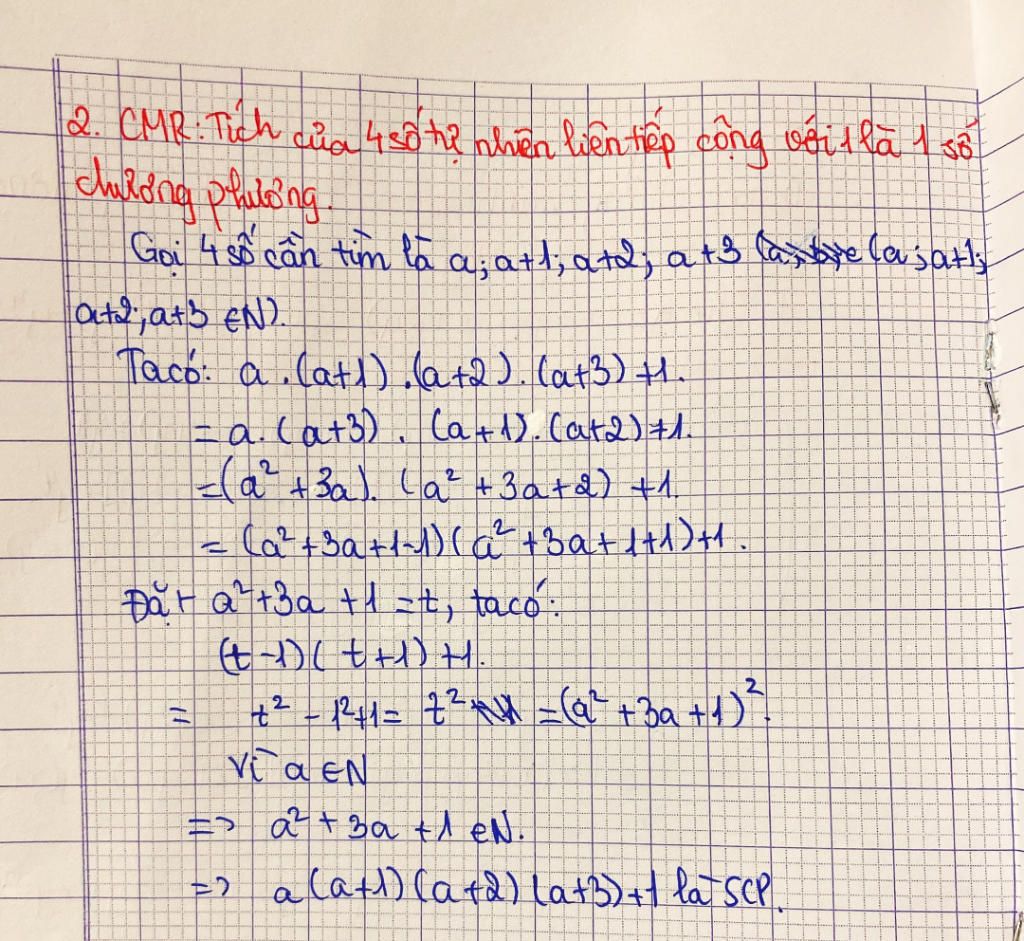 2. CMR: Tích của 4 số tự nhiên liên tiếp cộng với 1 là 1 số
chương phương.
Gọi 4 số cần tìm là a; a+1; a+2; a+3 (a; a+1;
a+2; a+3 ∈N).
Ta có: a.(a+1).(a+2).(a+3)+1.
= a.(a+3).(a+1).(a+2)+1.
=(a²+3a).(a²+3a+2)+1.
= (a²+3a+1-1)(a²+3a+1+1)+1.
Đặt a²+3a+1=t, ta có:
(t-1)(t+1)+1.
= t²-1²+1= t² =(a²+3a+1)².
Vì a∈N
=> a²+3a+1 ∈N.
=> a(a+1)(a+2)(a+3)+1 là SCP.